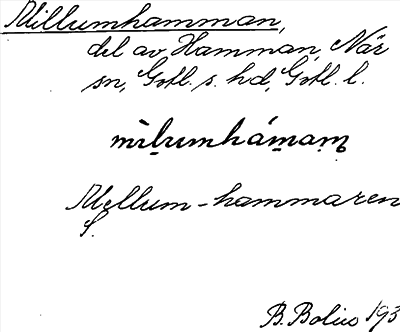 Millumhamman,
del av Hamman, När
sn, Gotl. s. hd, Gotl. l.
Mellum-hammaren
S.
B. Bolius 193